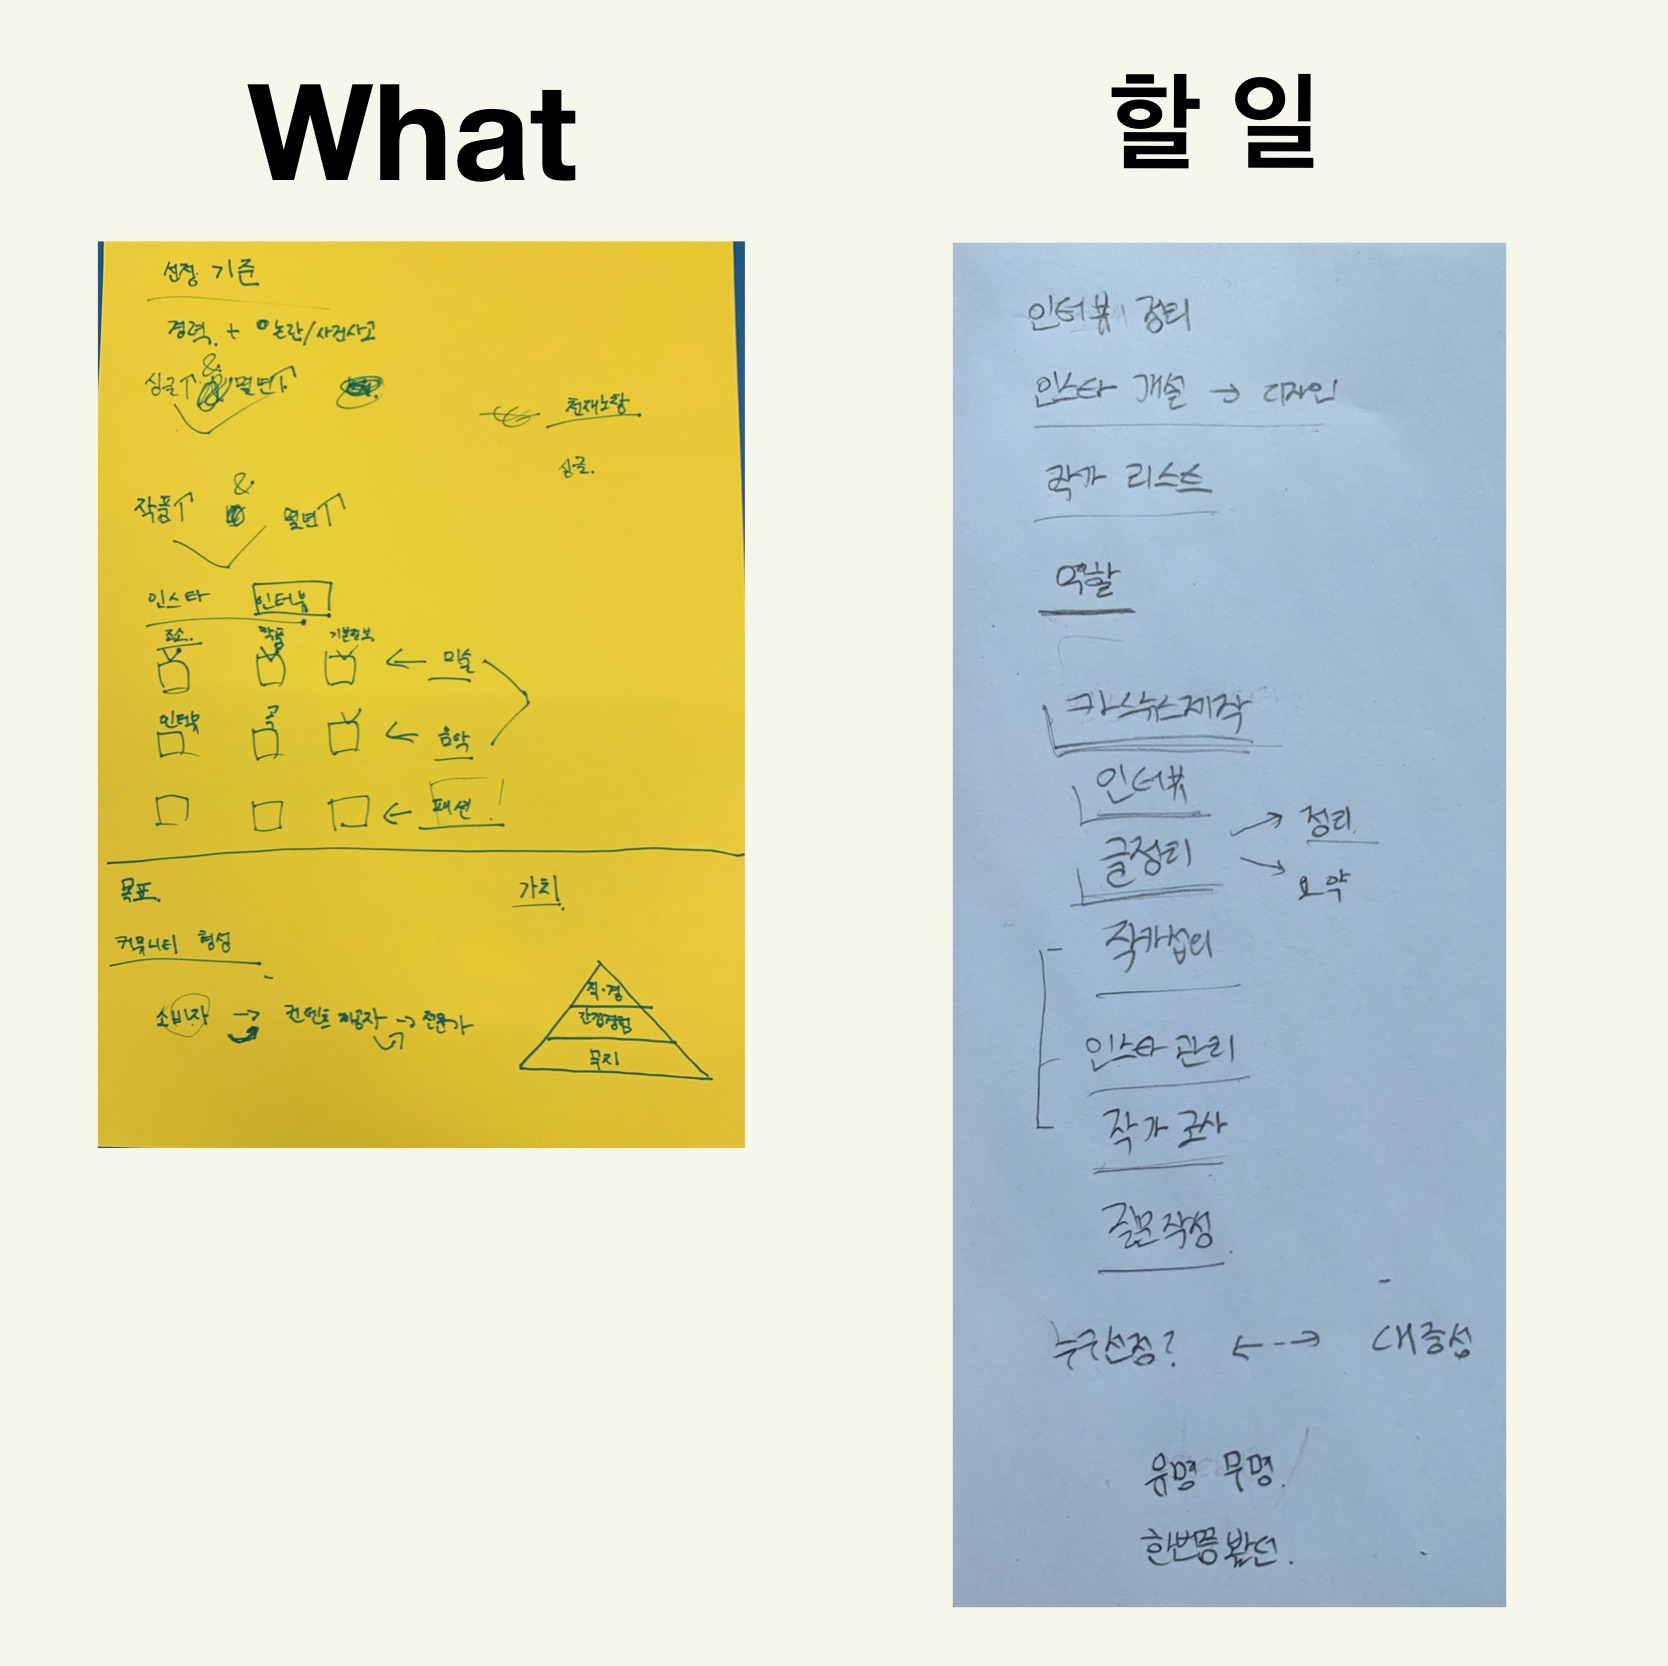 What
선정 기준
경력 + 논란/사건사고
싱글↑ & 몇년↑
천재노창
싱글.
작품↑ & 몇년↑
인스타 인터뷰
작품 기본정보
← 미술
인터뷰 곡
← 음악
← 패션
목표.
가치.
커뮤니티 형성
소비자 → 컨텐츠 제공자 → 전문가
직·경
간접경험
무지
할 일
인터뷰 정리
인스타 개설 → 디자인
작가 리스트
역할
카드뉴스제작
인터뷰
글정리
→ 정리
→ 요약
작가섭외
인스타 관리
작가 조사
질문작성.
누구선정? ←--→ 대중성
유명 무명.
한번쯤 봤던.